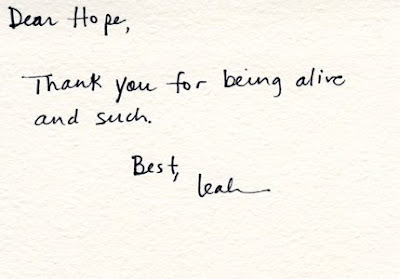 Dear Hope,
Thank you for being alive
and such.
Best,
Leah